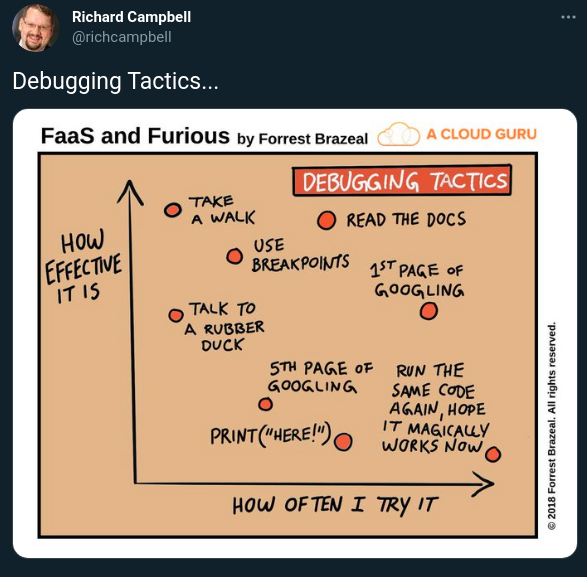 Richard Campbell
@richcampbell
Debugging Tactics...
FaaS and Furious by Forrest Brazeal
A CLOUD GURU
DEBUGGING TACTICS
HOW
EFFECTIVE
IT IS
TAKE
A WALK
READ THE DOCS
USE
BREAKPOINTS
1ST PAGE OF
GOOGLING
TALK TO
A RUBBER
DUCK
5TH PAGE OF
GOOGLING
RUN THE
SAME CODE
AGAIN, HOPE
IT MAGICALLY
WORKS NOW
PRINT("HERE!")
HOW OFTEN I TRY IT
© 2018 Forrest Brazeal. All rights reserved.